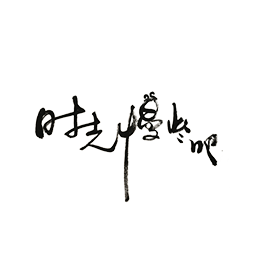 时光慢些吧